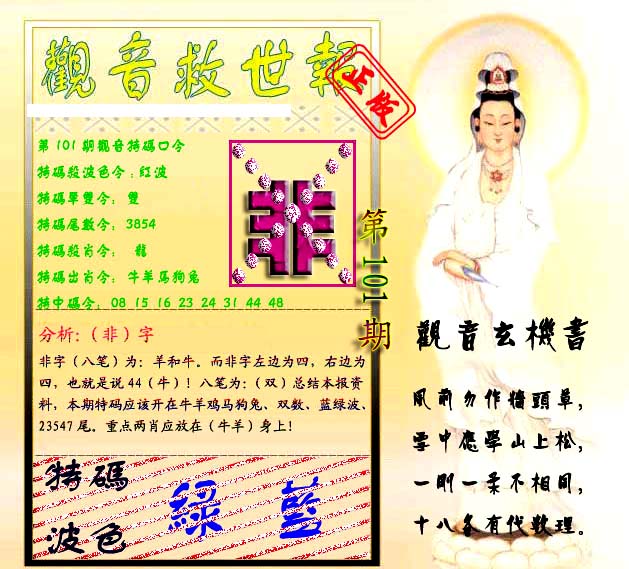 觀音救世報
正版
第101期觀音特碼口令
特碼殺波色令:紅波
特碼單雙令: 雙
特碼尾數令: 3854
特碼殺肖令: 龍
特碼出肖令: 牛羊馬狗兔
特中碼令: 08 15 16 23 24 31 44 48
非
第101期
分析:(非)字
非字(八笔)为: 羊和牛。而非字左边为四,右边为
四, 也就是说 44(牛)! 八笔为:(双)总结本报资
料, 本期特码应该开在牛羊鸡马狗兔、双数、蓝绿波、
23547 尾。重点两肖应放在(牛羊)身上!
特碼
波色
綠 藍
觀音玄機書
風前勿作牆頭草,
雪中應學山上松,
一剛一柔不相同,
十八各有代數理。